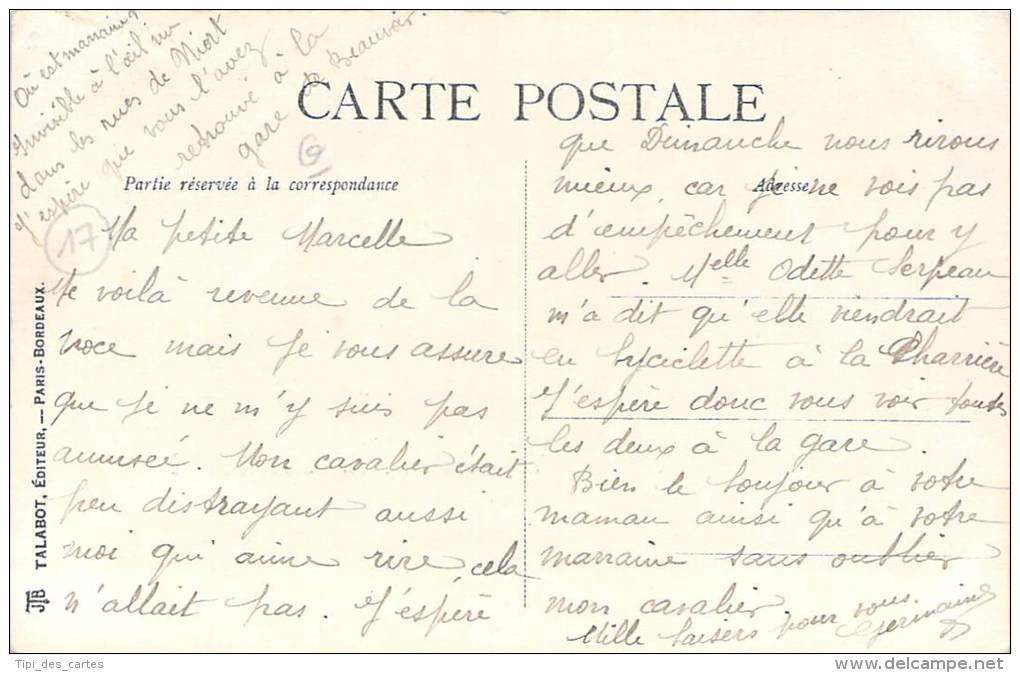 Où est marraine?
Invisible à l'œil nu
dans les rues de Niort
J'espère que vous l'avez
retrouvé à la
gare de Beauvoir.
CARTE POSTALE
Partie réservée à la correspondance
Adresse
17
Ma petite Marcelle
Me voilà revenue de la
noce mais je vous assure
que je ne m'y suis pas
amusée. Mon cavalier était
peu distrayant aussi
moi qui aime rire, cela
n'allait pas. J'espère
que Dimanche nous rirons
mieux, car je ne vois pas
d'empêchement pour y
aller. Melle Odette Serpeau
m'a dit qu'elle viendrait
en byciclette à la Charrière
J'espère donc vous voir toutes
les deux à la gare.
Bien le bonjour à votre
maman ainsi qu'à votre
marraine sans oublier
mon cavalier.
Mille baisers pour vous.
Germaine
TALABOT, ÉDITEUR, — PARIS-BORDEAUX.
JTB
Tipi_des_cartes
www.delcampe.net